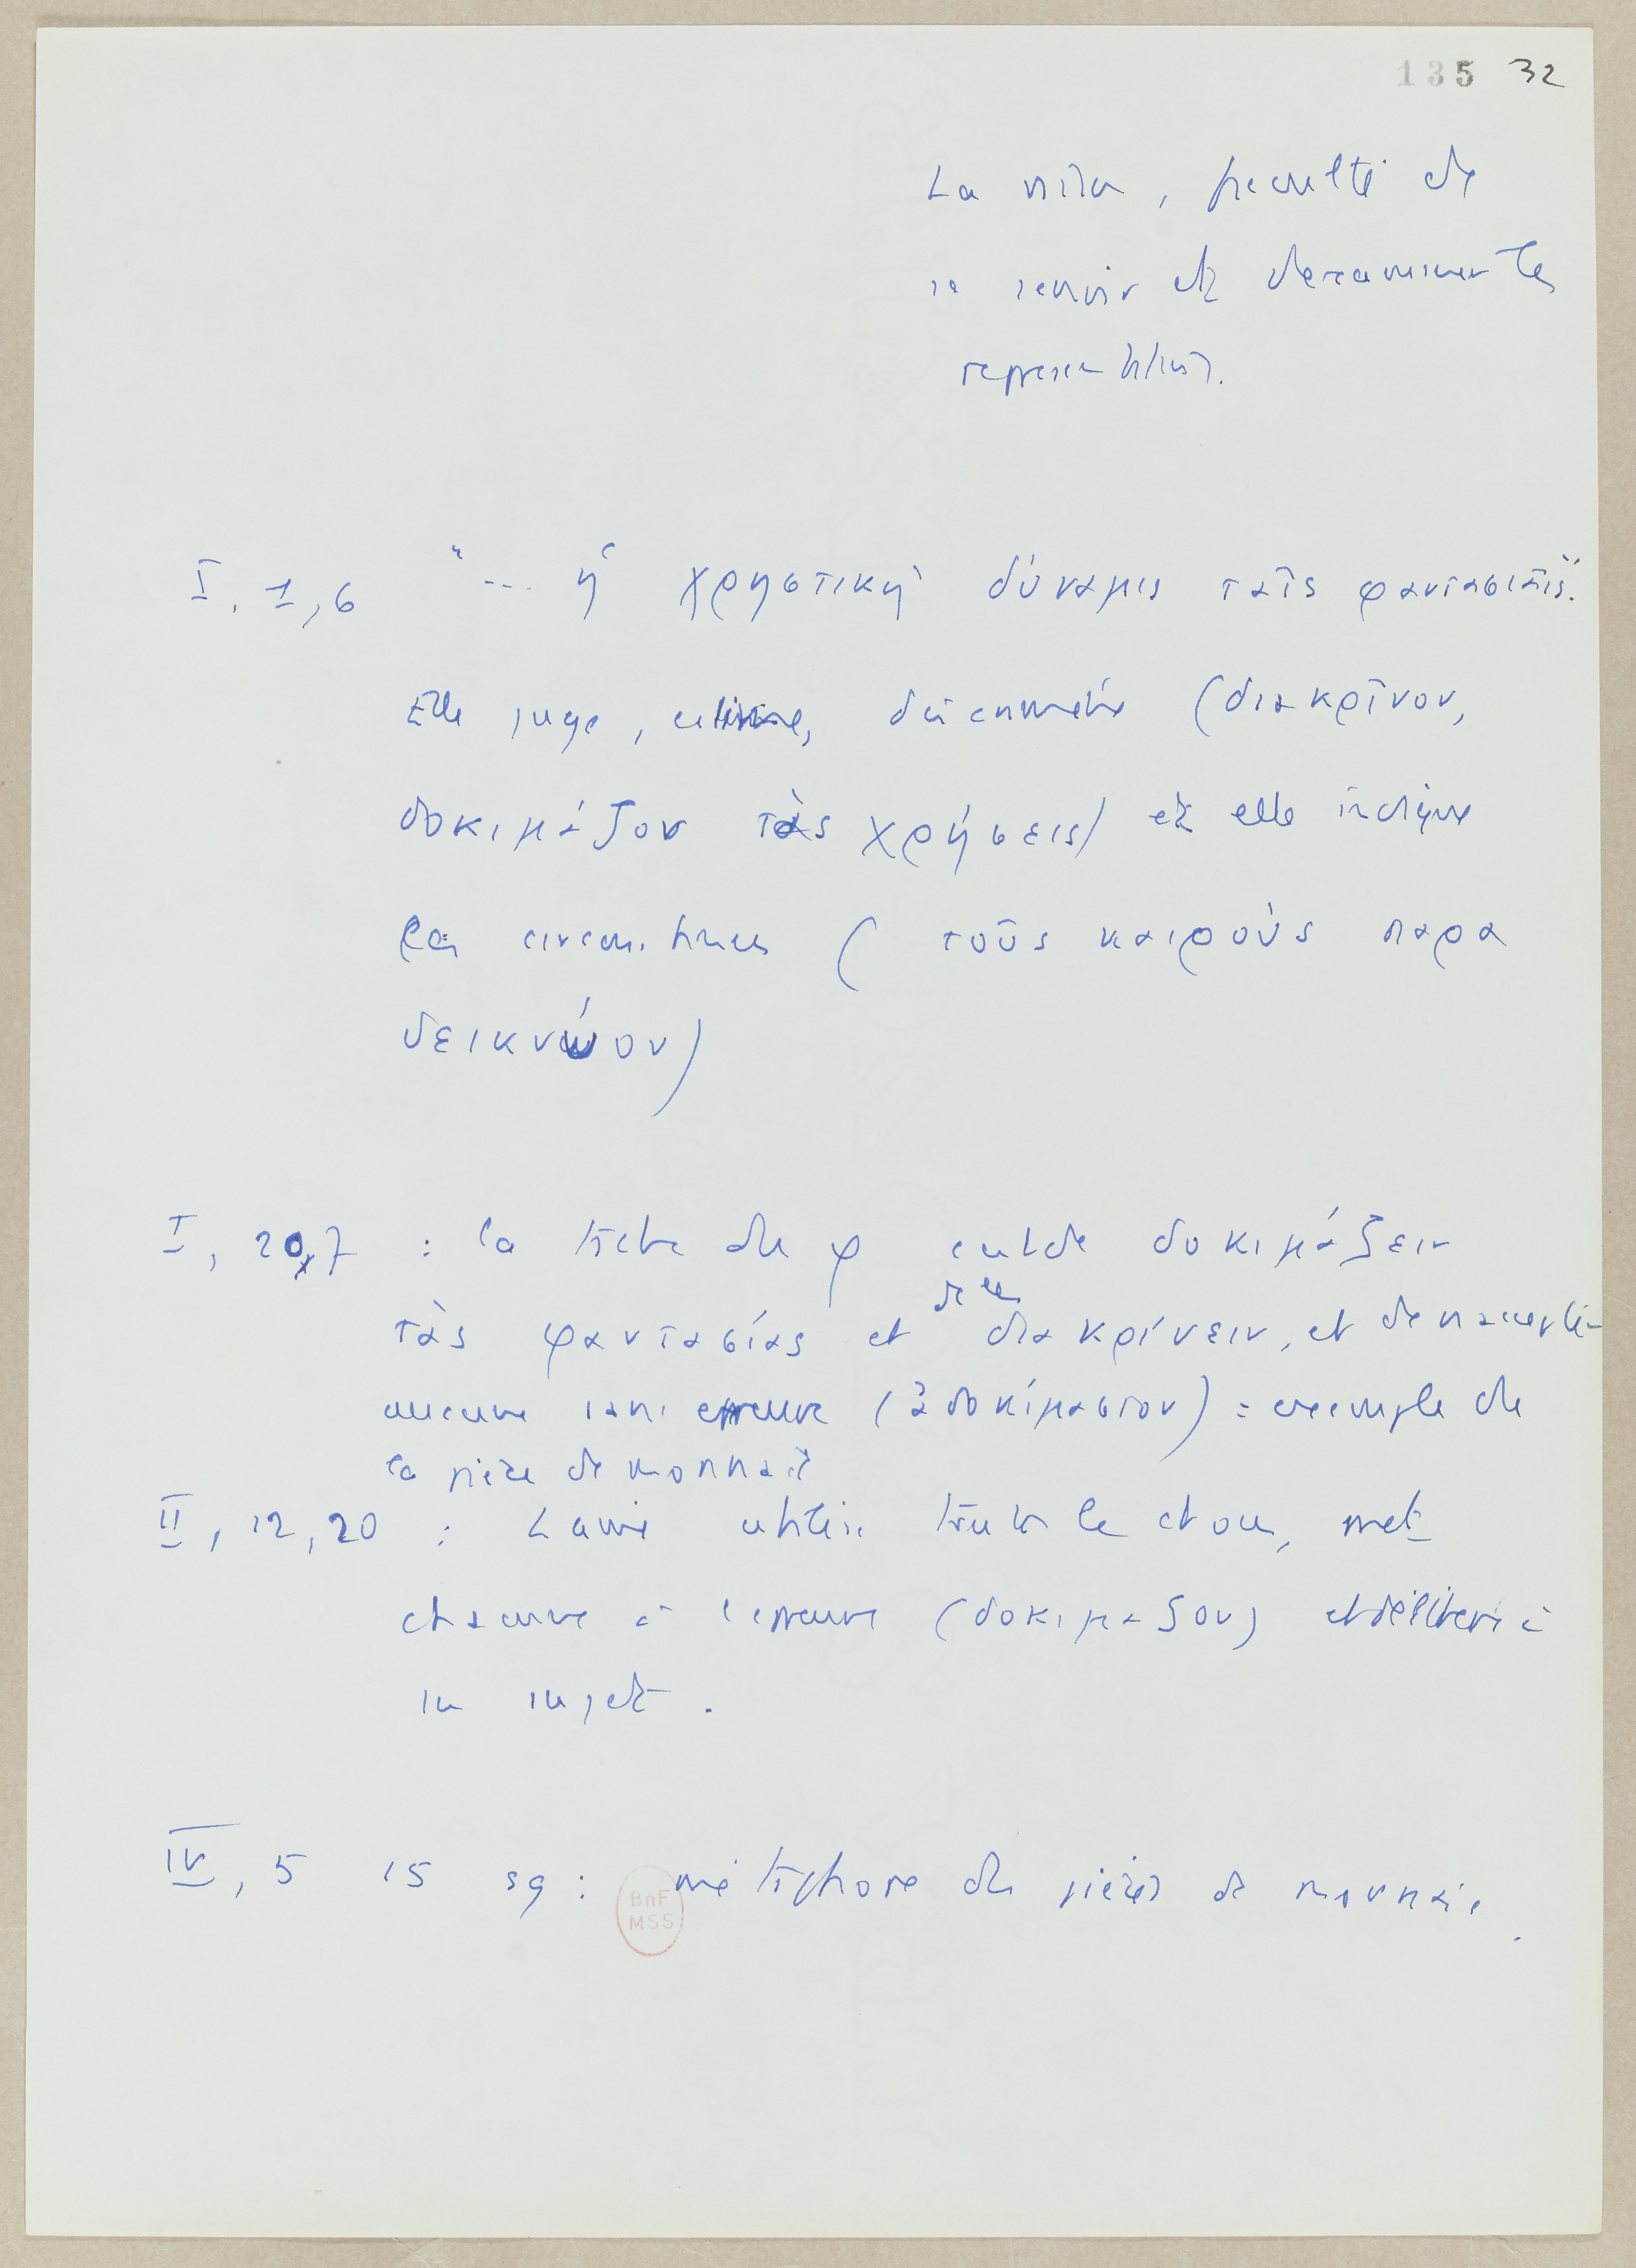 135 32
La raison, faculté de
se servir et d'examiner les
representations.
I. 1, 6 "... ἡ χρηστικὴ δύναμις ταῖς φαντασίαις".
Elle juge, estime, (διακρῖνον,
δοκιμάζον τὰς χρήσεις) et elle indique
les circonstances (τοὺς καιροὺς παρα
δεικνύον)
I, 20, 7 : la tâche du φ est de δοκιμάζειν
de les
τὰς φαντασίας et διακρίνειν, et de n'accepter
aucune sans epreuve (ἀδοκίμαστον) : exemple de
la pièce de monnaie
II, 12, 20 : L'ame utilise toutes les choses, met
chacune à l'epreuve (δοκιμαζον) et délibere à
su sujet.
IV, 5 15 sq : métaphore des pièces de monnaie.
BnF
MSS